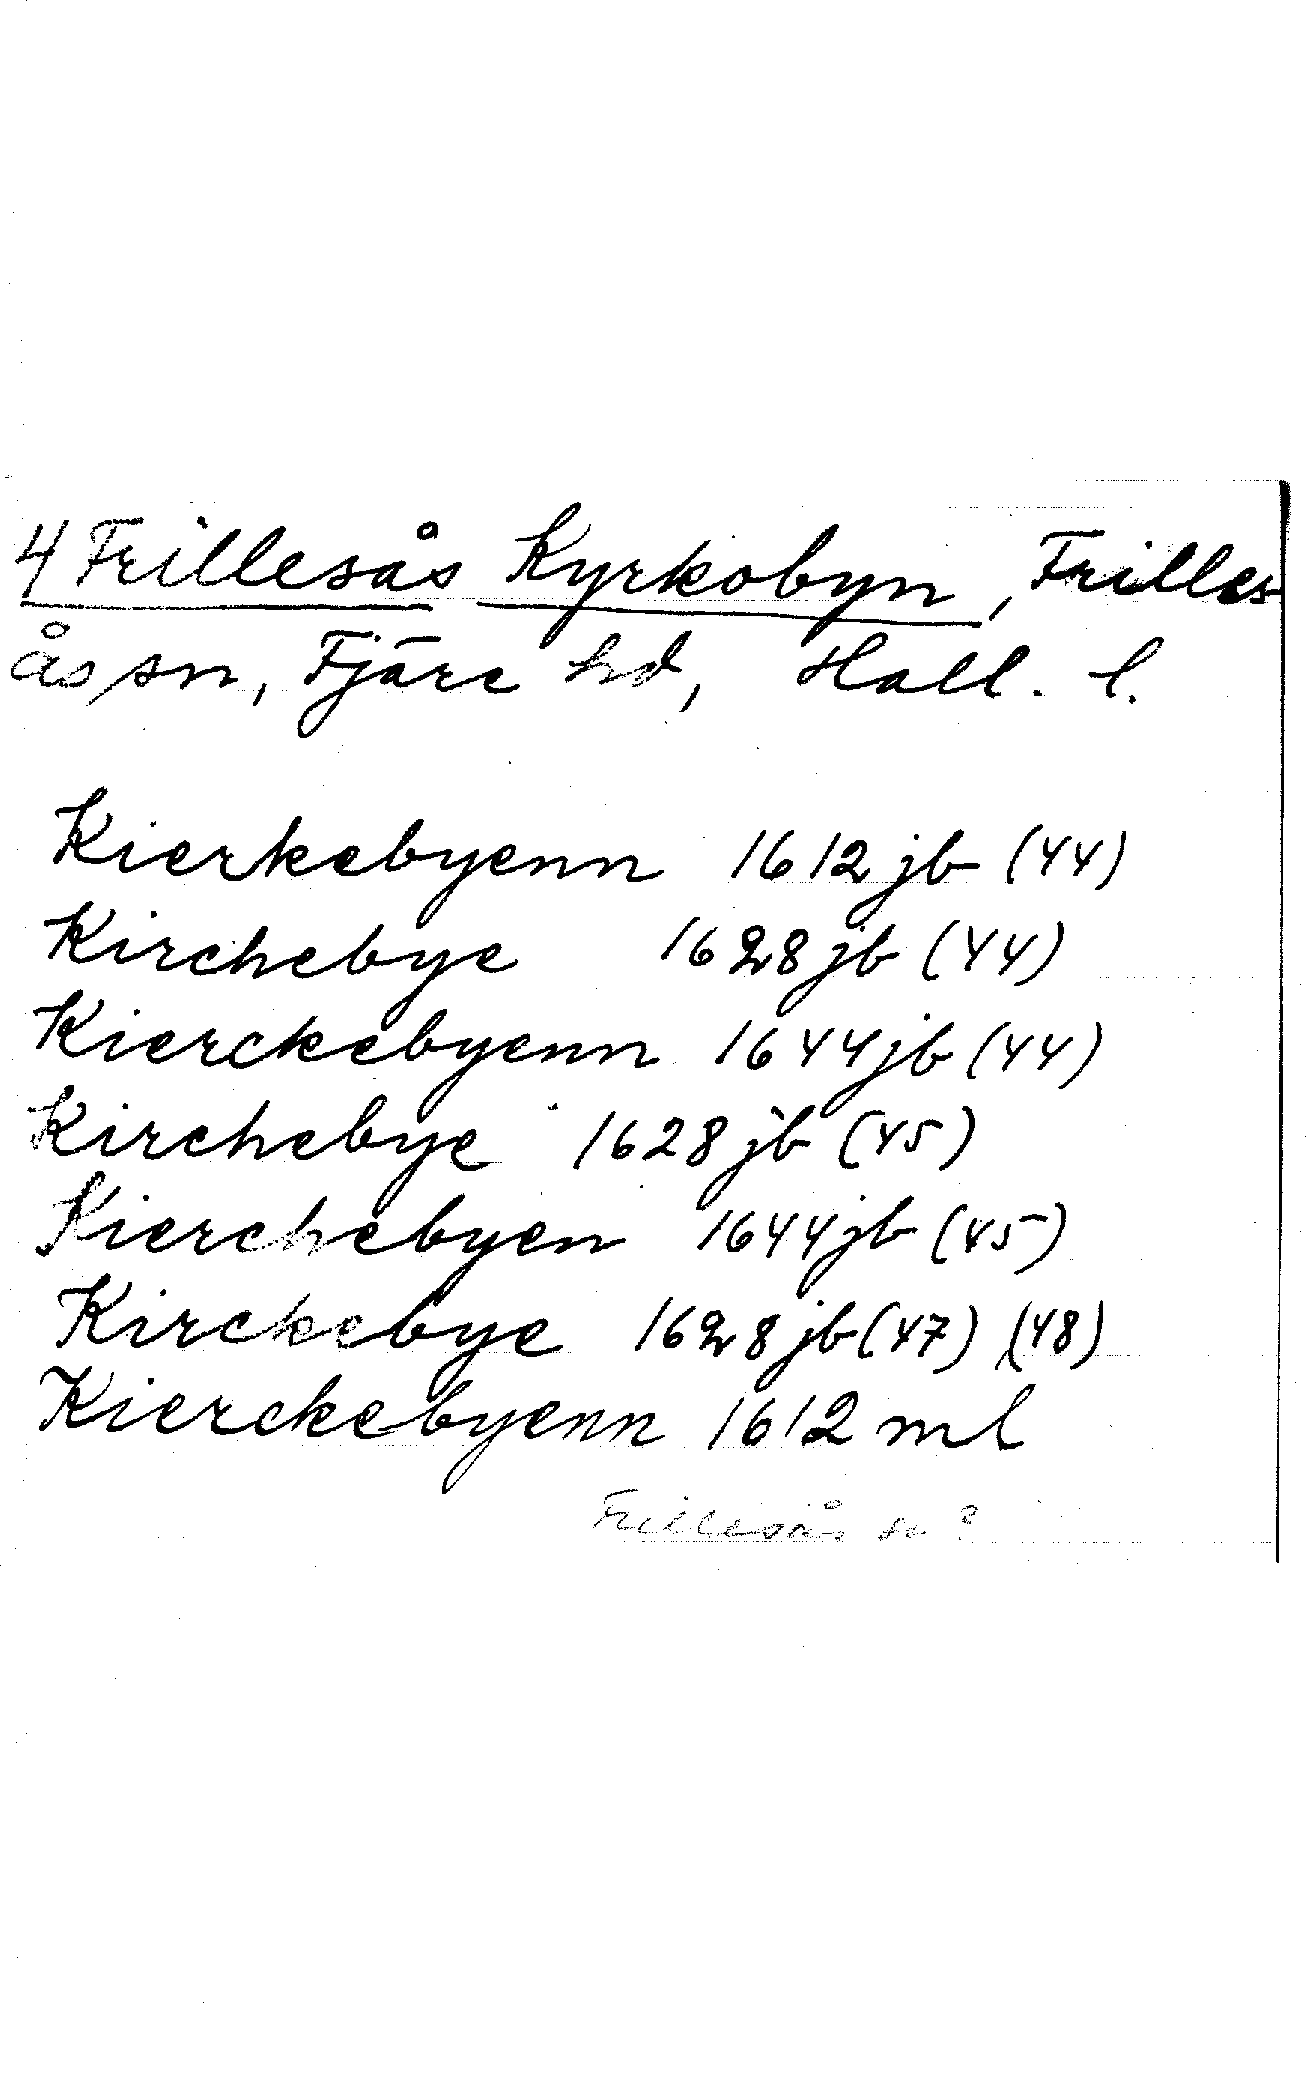 4 Frillesås Kyrkobyn, Frilles
ås sn, Fjäre hd, Hall. l.
Kierkebyenn 1612 jb (44)
Kirchebye 1628 jb (44)
Kierckebyenn 1644 jb (44)
Kirchebye 1628 jb (45)
Kierchebyen 1644 jb (45)
Kirckebye 1628 jb (47) (48)
Kierckebyenn 1612 ml
Frillesås sn ?